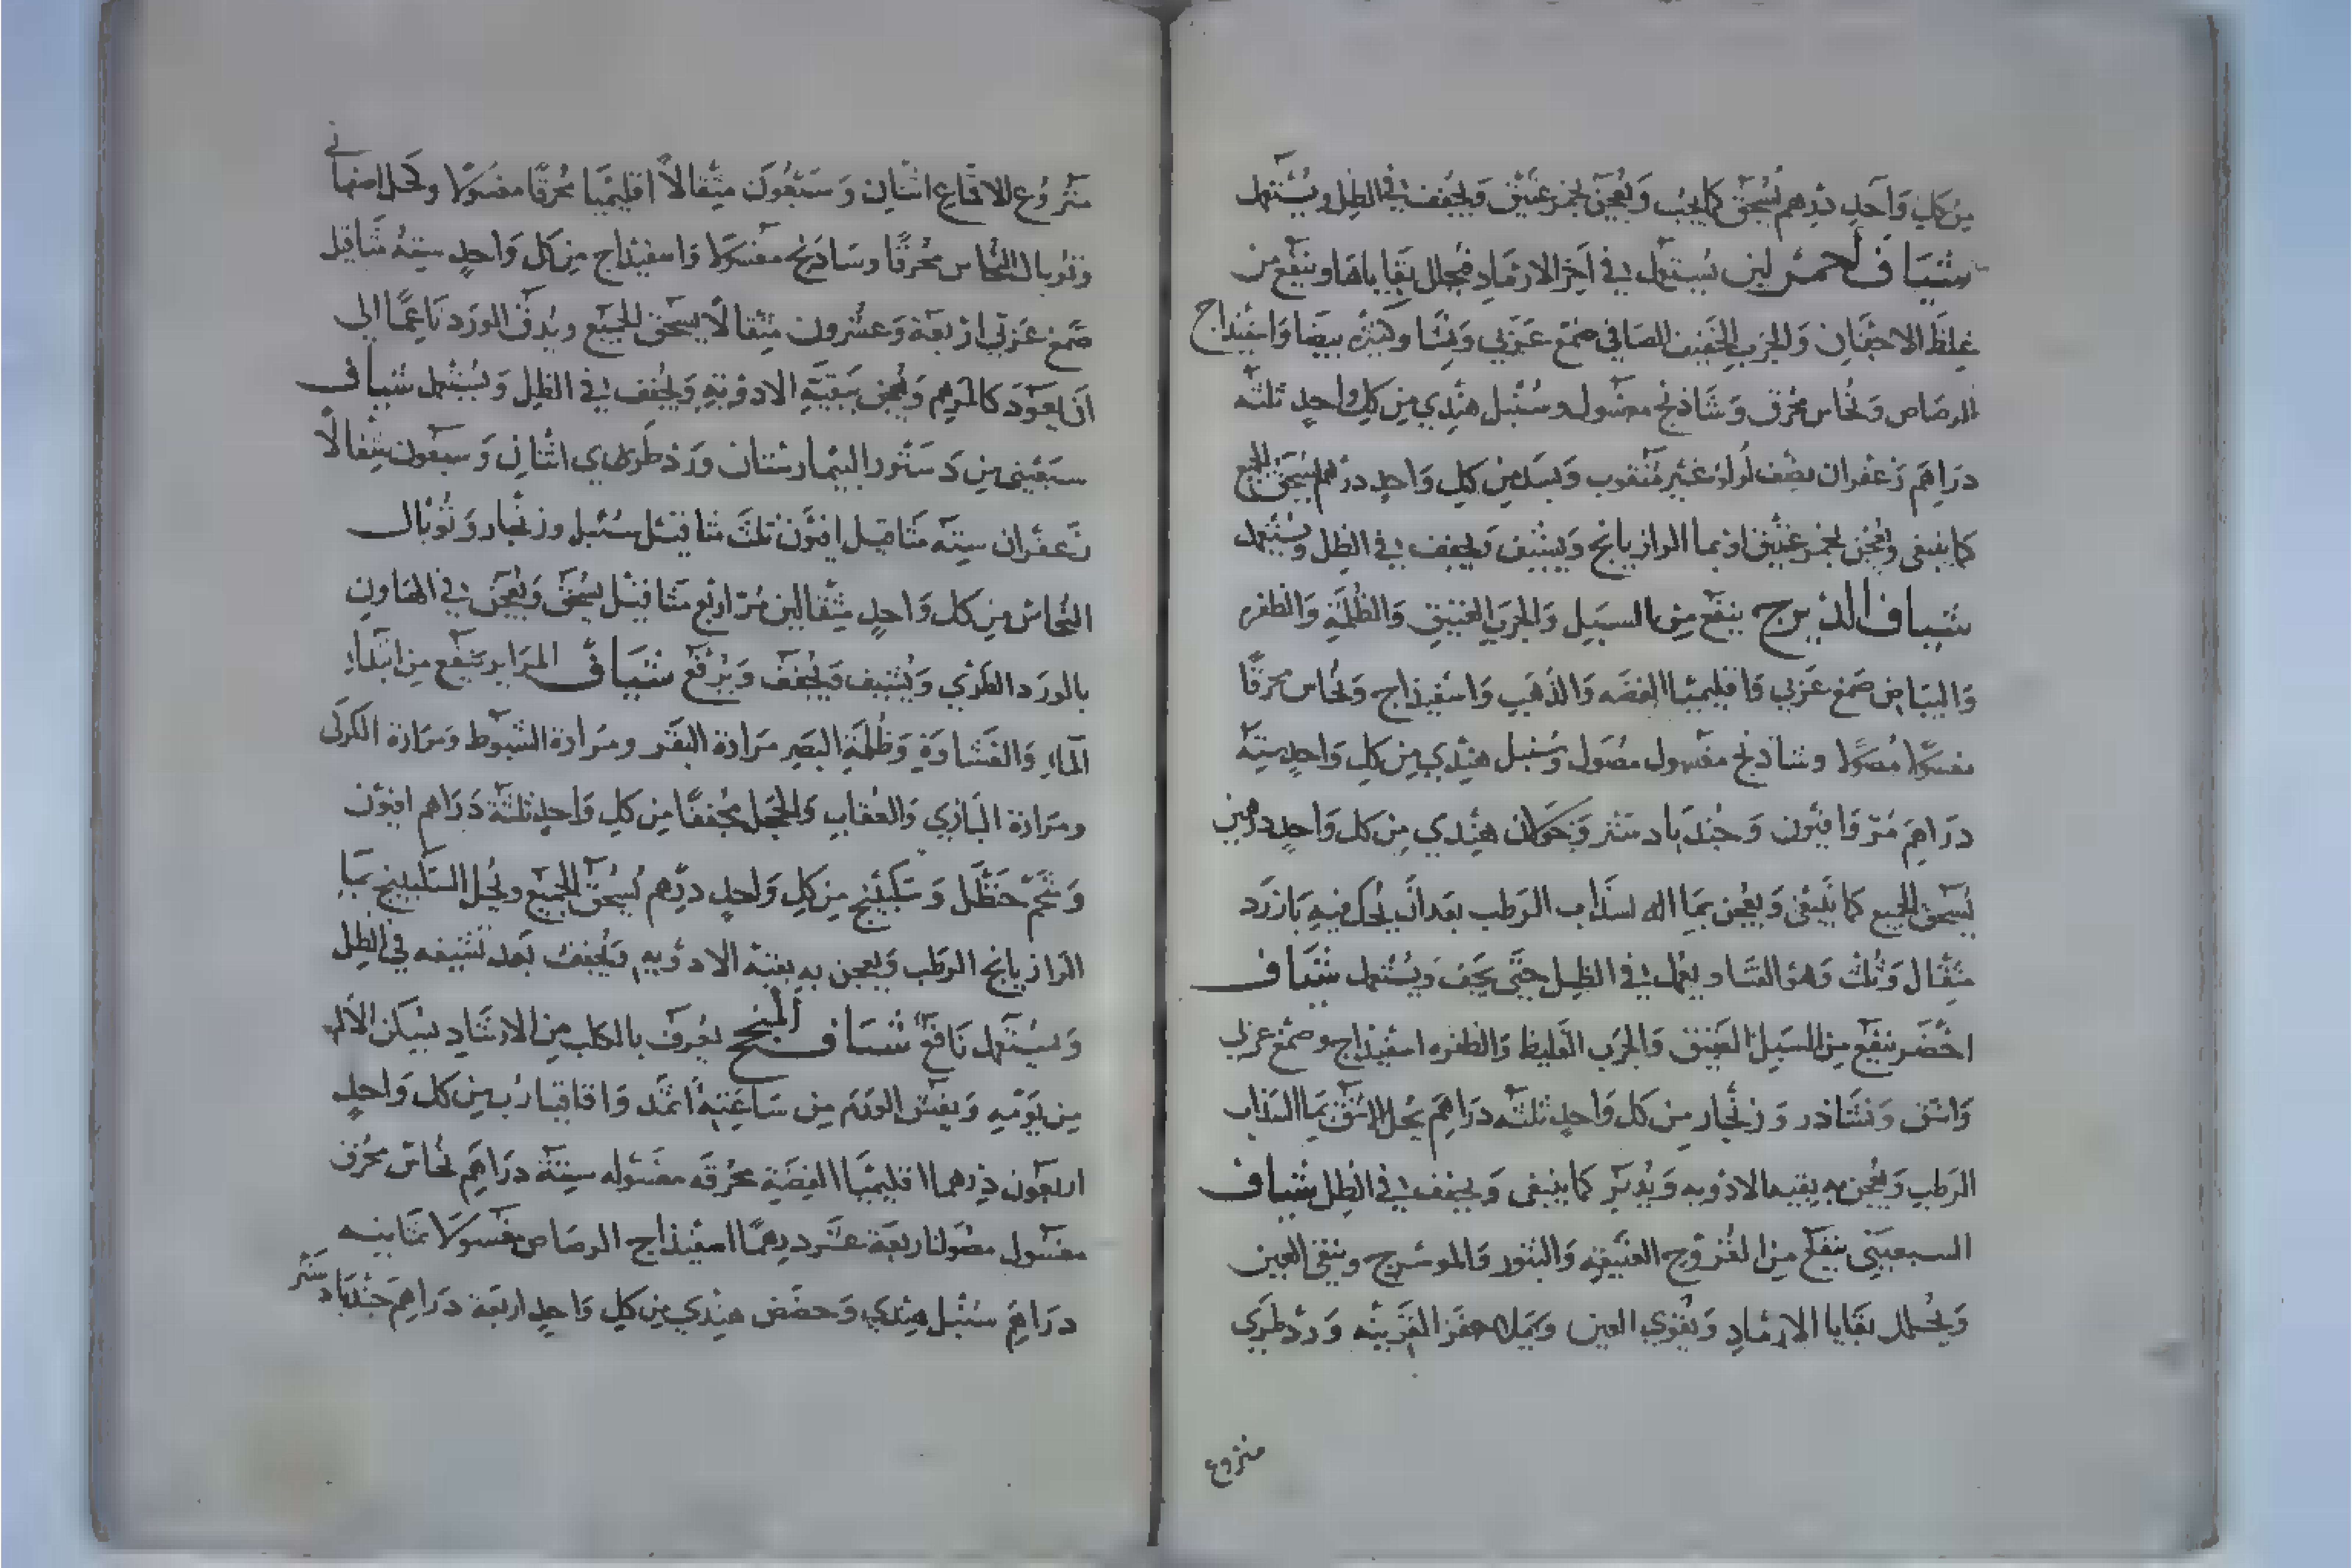 من كل واحد درهم يسحق كما يجب ويعجن بخمر عتيق ويجفف في الظل ويستعمل
شياف احمر لين يستعمل في آخر الارماد فيحلل بقاياها وينفع من
غلظ الاجفان والجرب الخفيف الصافي صمغ عربي ونشا وكثيره بيضا واسفيداج
الرصاص ونحاس محرق وشاذنج مغسول وسنبل هندي من كل واحد ثلثه
دراهم زعفران نصف لولو غير مثقوب وبسد من كل واحد درهم يسحق الجميع
كما ينبغي ويعجن بخمر عتيق او بما الرازيانج ويشيف ويجفف في الظل ويستعمل
شياف الديزج ينفع من السبل والجرب العتيق والظلمة والظفره
والبياض صمغ عربي واقليميا الفضه والذهب واسفيذاج ونحاس محرقا
مغسولا مصولا وشاذنج مغسول مصول وسنبل هندي من كل واحد سته
دراهم مر وافيون وجندبادستر وخولان هندي من كل واحد درهمين
يسحق الجميع كما ينبغي ويعجن بما السذاب الرطب بعد ان يحل فيه بازرد
مثقال وثلث وهو القنا ويعمل في الظل حتى يجف ويستعمل شياف
اخضر ينفع من السبل العتيق والجرب الغليظ والظفره اسفيذاج وصمغ عربي
واشق ونشاذر وزنجار من كل واحد ثلثه دراهم يحل الاشق بما السذاب
الرطب ويعجن به بقيه الادويه ويدبر كما ينبغي ويجفف في الظل شياف
السبعيني ينفع من القروح العتيقه والبثور والموسرج وينقي العين
ويحلل بقايا الارماد ويقوي العين ويملا حفر القرنيه ورد طري
منزوع
منزوع الاقماع اثنان وسبعون مثقالا اقليميا محرقا مغسولا وكحل اصفهاني
وتوبال النحاس محرقا وساذنج مغسولا واسفيذاج من كل واحد ستة مثاقيل
صمغ عربي اربعة وعشرون مثقالا يسحق الجميع ويدق الورد ناعما الي
ان يعود كالمرهم ويعجن ببقية الادوية ويجفف في الظل ويستعمل شياف
سبعيني من دستور البيمارستان ورد طري اثنان وسبعون مثقالا
زعفران سته مثاقيل افيون ثلث مثاقيل سنبل وزنجار وتوبال
النحاس من كل واحد مثقالين مر اربع مثاقيل يسحق ويعجن في الهاون
بالورد الطري ويشيف ويجفف ويرفع شياف المراير ينفع من ابتداء
الماء والغشاوة وظلمة البصر مرارة البقر ومرارة الشبوط ومرارة الكركي
ومرارة البازي والعقاب والحجل مجففا من كل واحد ثلثة دراهم افيون
وشحم حنظل وسكبينج من كل واحد درهم يسحق الجميع ويحل السكبينج بما
الرازيانج الرطب ويعجن به بقية الادويه ويجفف بعد تشيفه في الظل
ويستعمل نافع شياف يعرف بالكلب من الارماد يسكن الالم
من يومه ويفش الورم من ساعته اثمد واقاقيا رب من كل واحد
اربعون درهما اقليميا الفضة محرقه مغسوله ستة دراهم نحاس محرق
مغسول مصولا اربعة عشر درهما اسفيذاج الرصاص مغسولا ثمانيه
دراهم سنبل هندي وحضض هندي من كل واحد اربعة دراهم جندبادستر